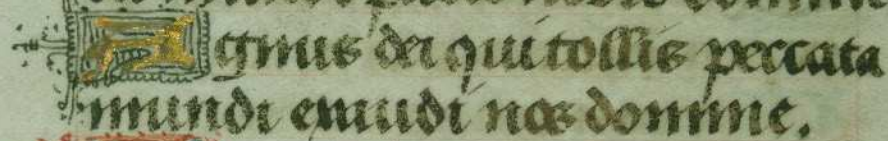 Agnus dei qui tollis peccata
mundi exaudi nos domine.